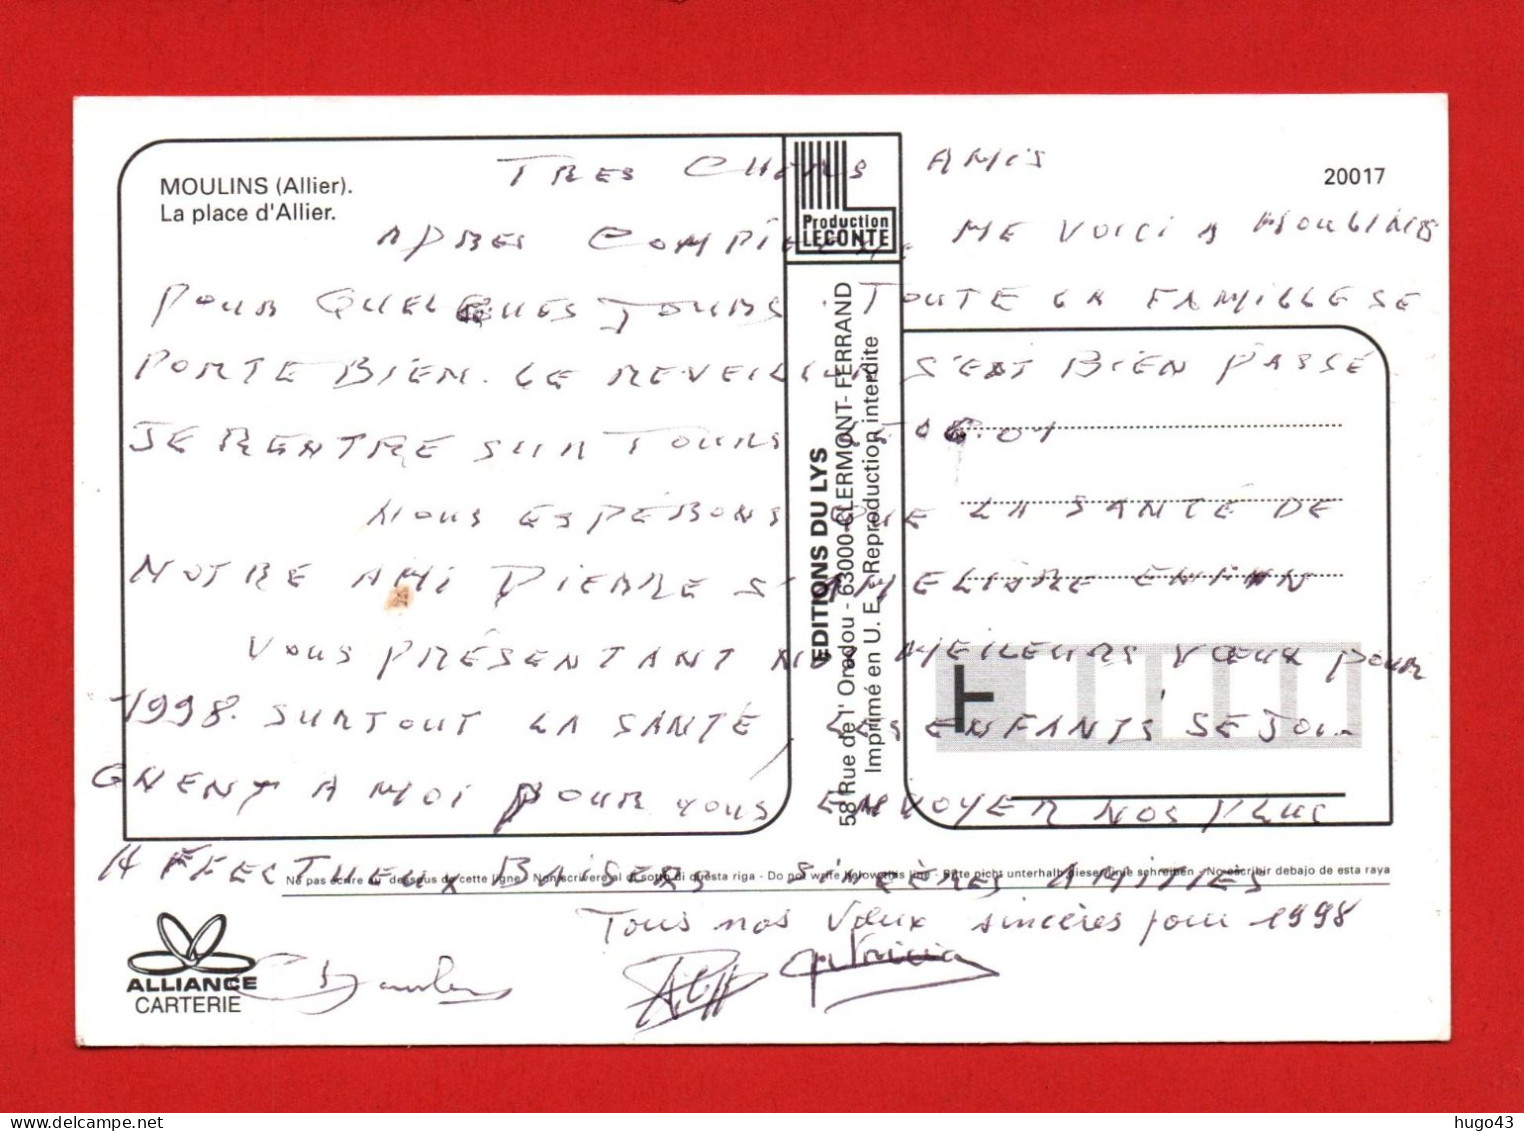 MOULINS (Allier).
La place d'Allier.
20017
Production
LECONTE
TRES CHERS AMIS
APRES COMPIEGNE. ME VOICI A MOULINS
POUR QUELQUES JOURS. TOUTE LA FAMILLE SE
PORTE BIEN. LE REVEILLON S'EST BIEN PASSÉ
JE RENTRE SUR TOURS LE 06.01
NOUS ESPÉRONS QUE LA SANTÉ DE
NOTRE AMI PIERRE S'AMELIORE ENFIN
VOUS PRÉSENTANT NOS MEILEURS VŒUX POUR
1998. SURTOUT LA SANTÉ, LES ENFANTS SE JOI-
GNENT A MOI POUR VOUS ENVOYER NOS PLUS
AFFECTUEUX BAISERS SINCÈRES AMITIES
Tous nos Vœux sincères pour 1998
Patricia
EDITIONS DU LYS
58 Rue de l' Oradou - 63000-CLERMONT- FERRAND
Imprimé en U. E. Reproduction interdite
Ne pas écrire au dessous de cette ligne - Non scrivere al di sotto di questa riga - Do not write below this line - Bitte nicht unterhalb dieser linie schreiben - No escribir debajo de esta raya
ALLIANCE
CARTERIE
hugo43